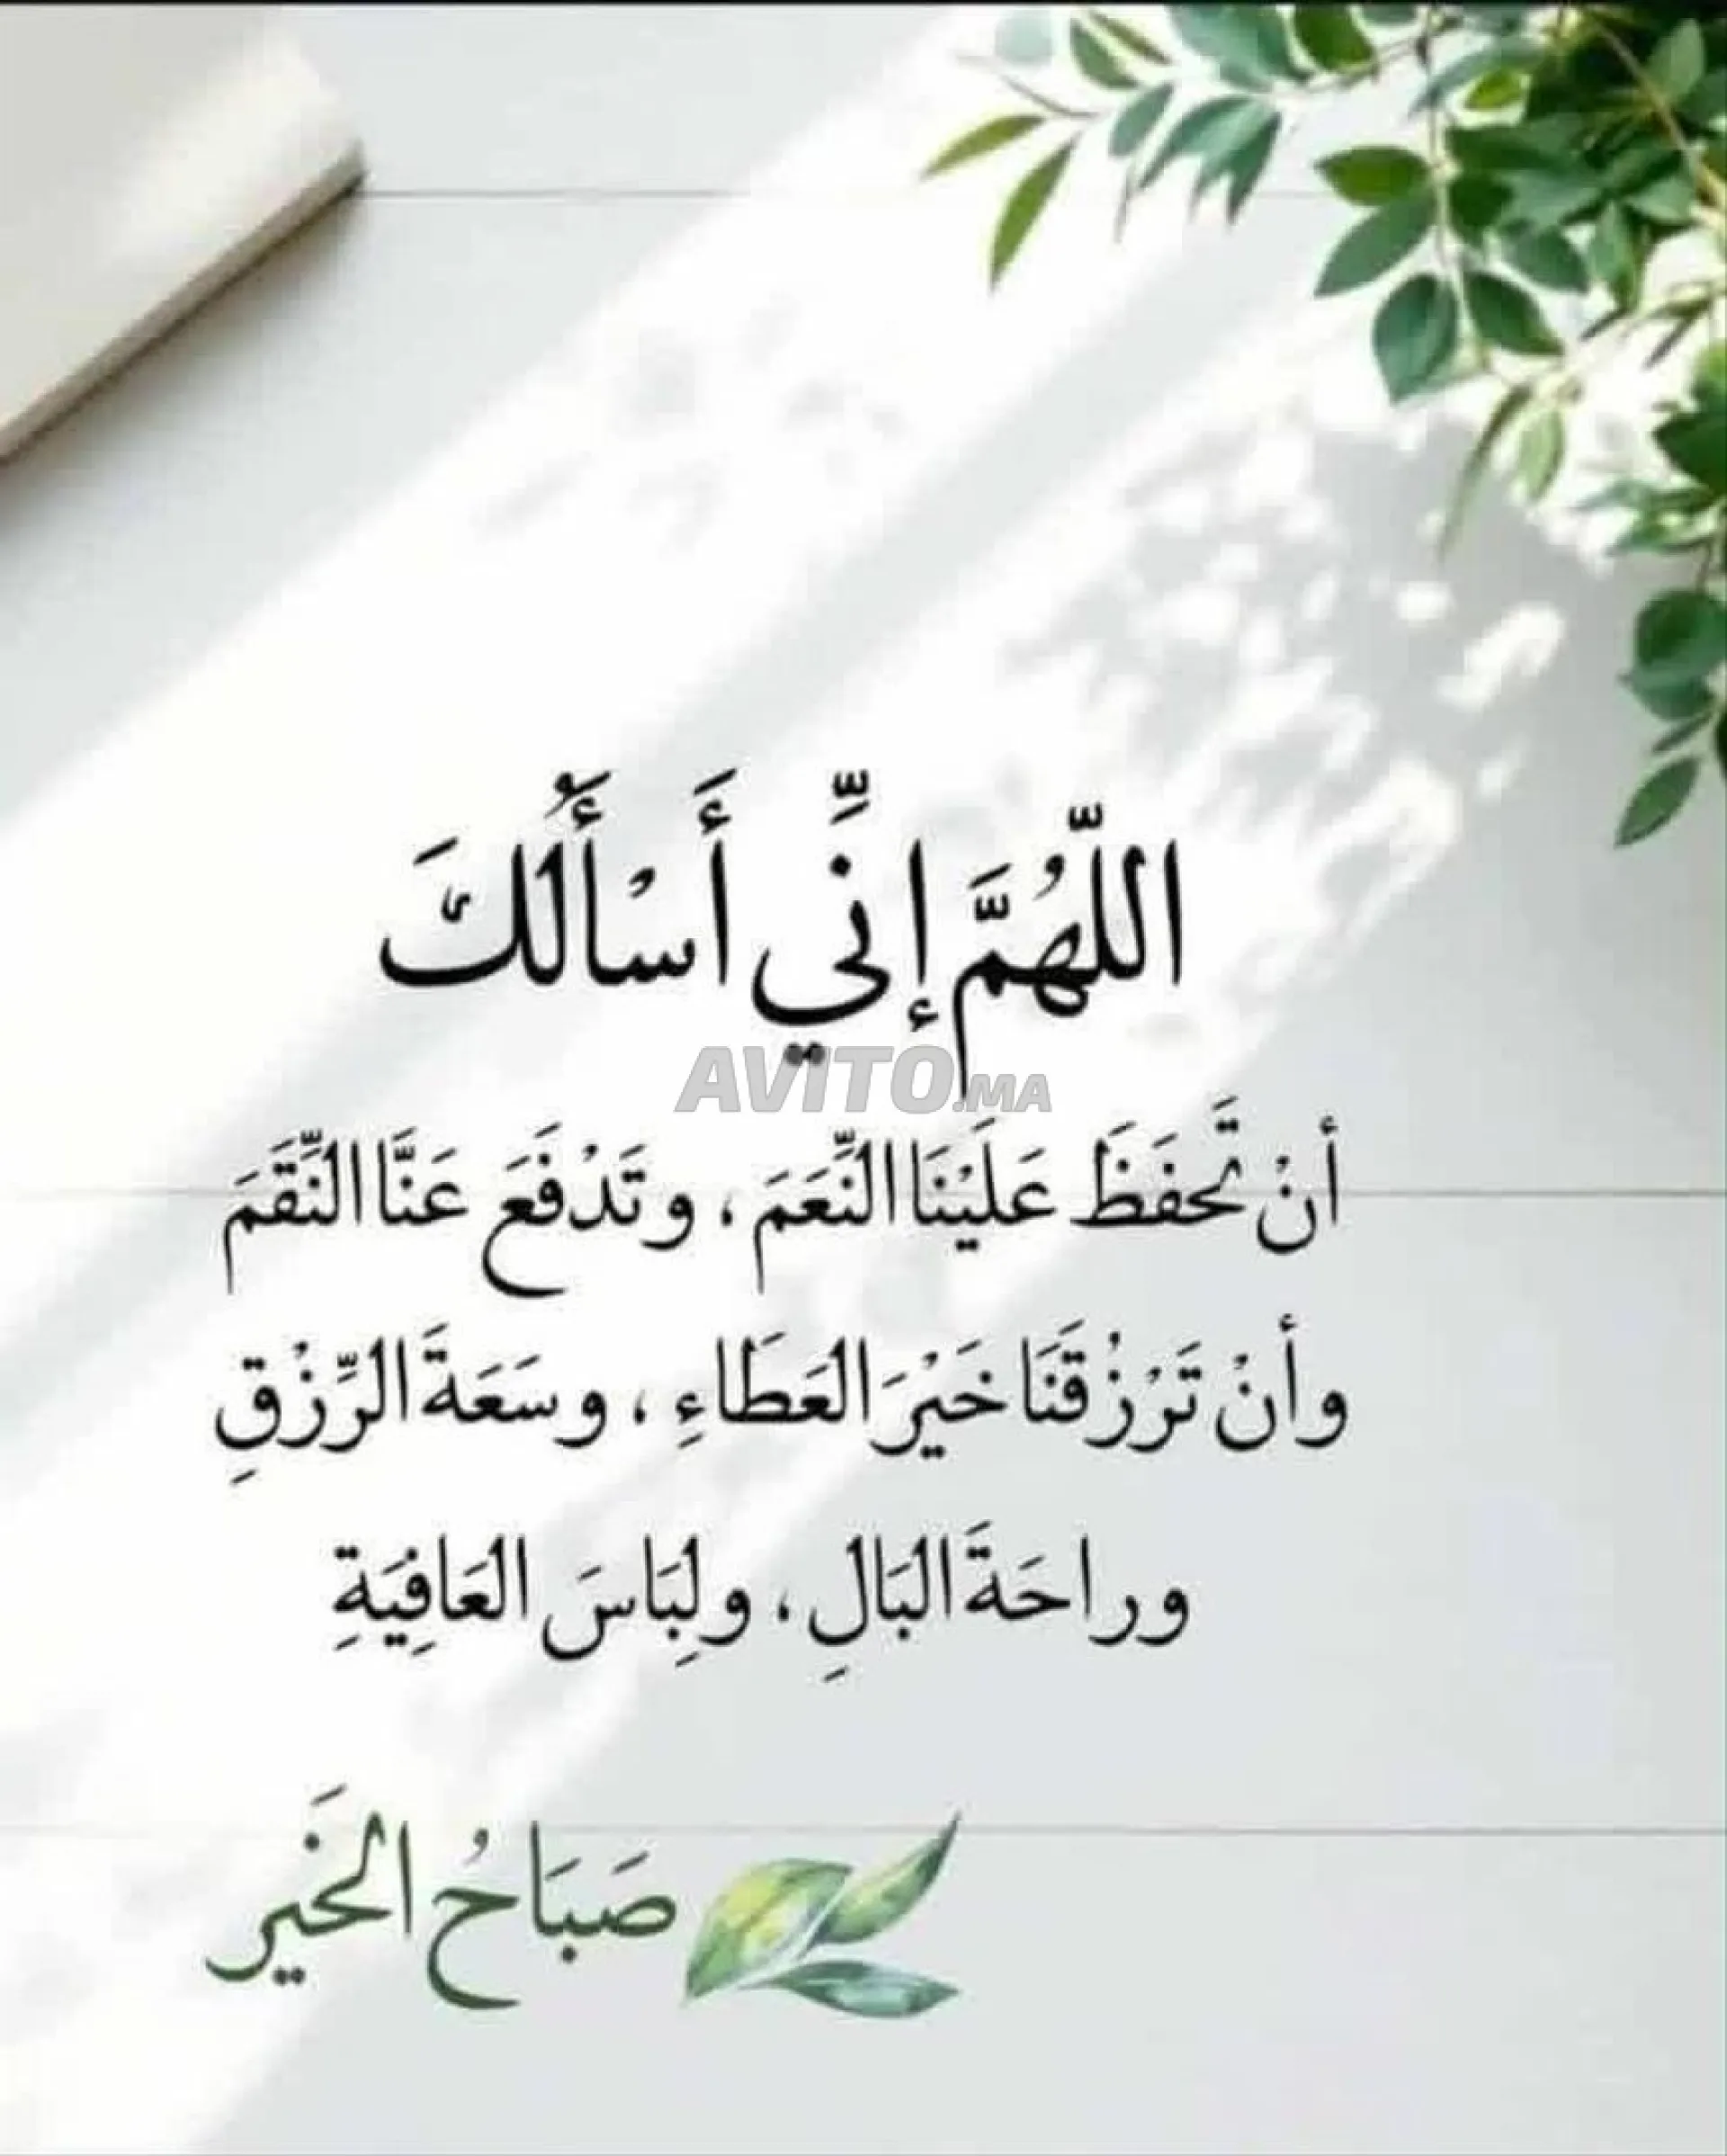 اللّهُمَّ إنِّي أَسْأَلُكَ
AVITO.MA
أنْ تَحفَظَ عَلَيْنَا النِّعَمَ، وتَدْفَعَ عَنَّا النِّقَمَ
وأنْ تَرْزُقَنَا خَيْرَ العَطَاءِ، وسَعَةَ الرِّزْقِ
وراحَةَ البَالِ، ولِبَاسَ العَافِيَةِ
صَبَاحُ الخَير